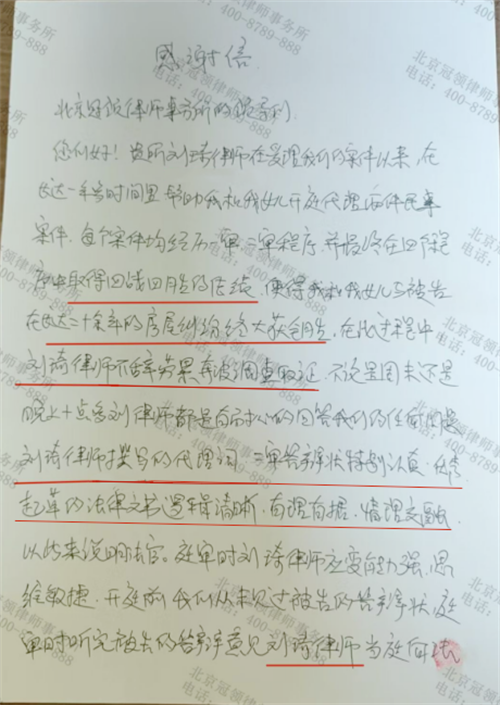 感谢信
北京冠领律师事务所的领导们
您们好！贵所刘琦律师在受理我们的案件以来，在
长达一年多时间里帮助我和我女儿开庭代理两件民事
案件，每个案件均经历一审、二审程序，并最终在四个程
序中取得四战四胜的佳绩，使得我和我女儿与被告
在长达二十余年的房屋纠纷终大获全胜，在此过程中
刘琦律师不辞劳累奔波调查取证，不论是周末还是
晚上十点多刘律师都是有耐心的回答我们的任何问题
刘琦律师撰写的代理词、二审答辩状特别认真、优秀
起草的法律文书逻辑清晰，有理有据，情理交融，
以此来说明法官。庭审时刘琦律师应变能力强，思
维敏捷，开庭前我们从未见过被告的答辩状，庭
审时听完被告的答辩意见刘琦律师当庭向法
北京冠领律师事务所
电话：400-8789-888